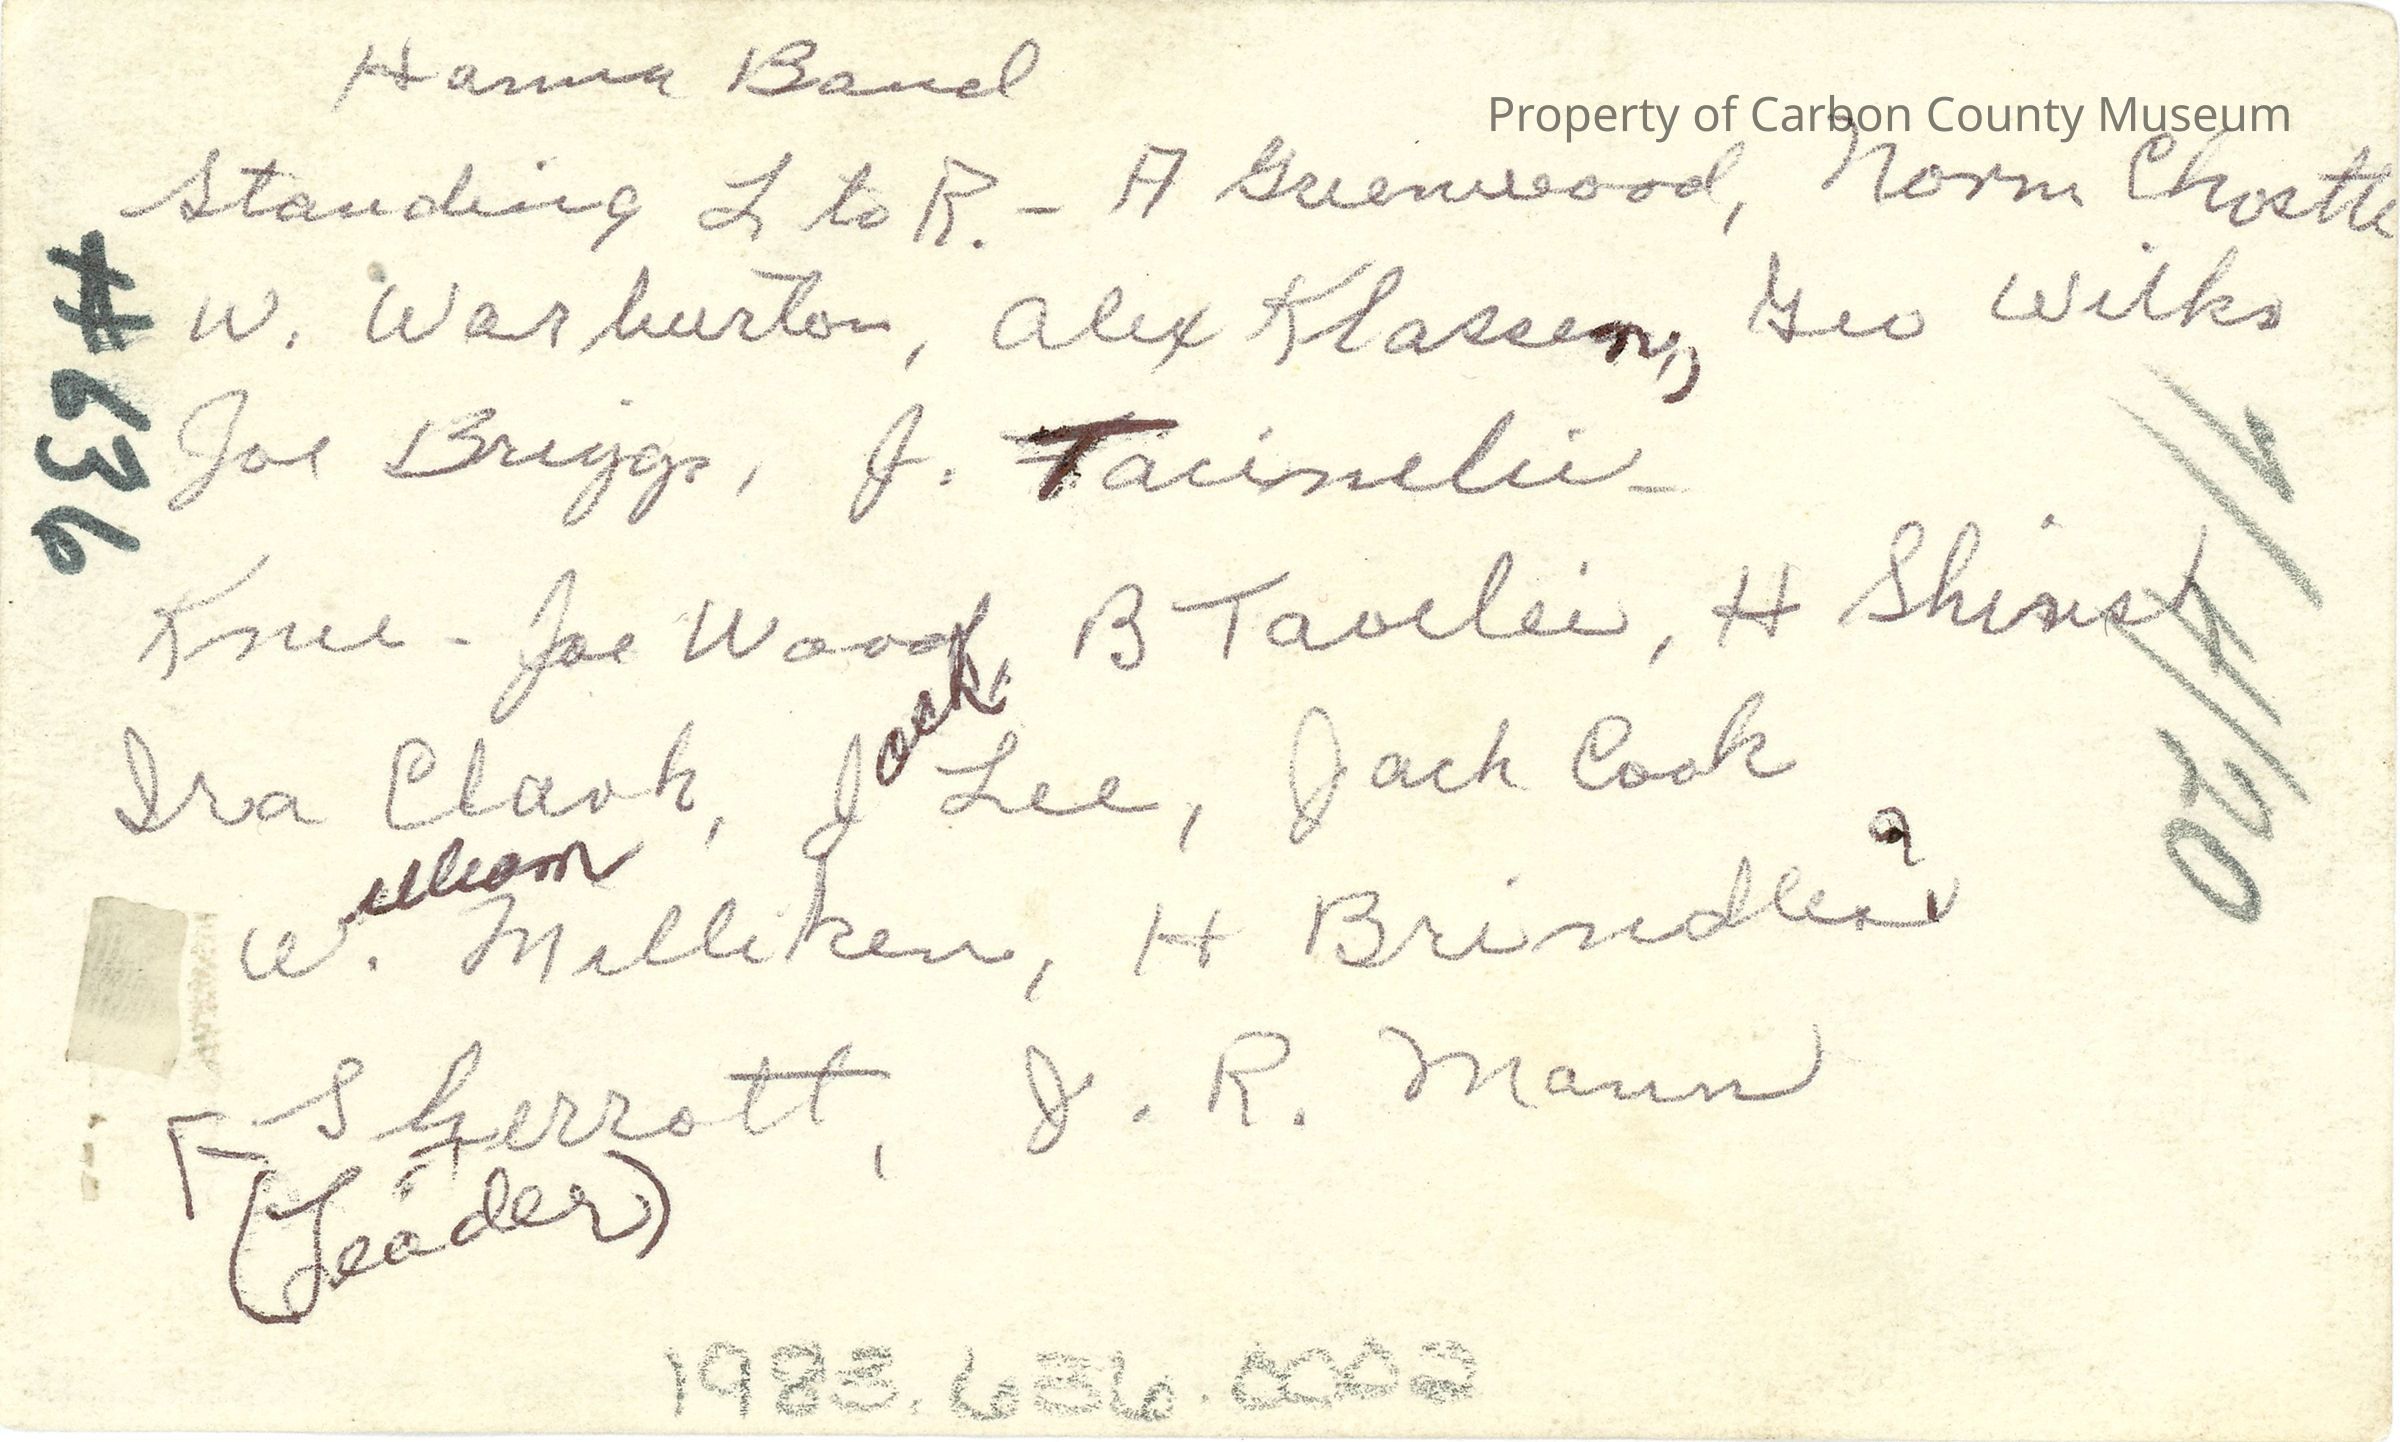 Hanna Band
Property of Carbon County Museum
Standing L to R. - A Greenwood, Norm Chostle
W. Warburton, Alex Klassen, Geo Wilks
Joe Briggs, J.
Knee - Joe Wood, B Tavelei, H
Ira Clark, Jack Lee, Jack Cook
William Milliken, H
S Gerrott, J. R. Mann
(Leader)
#636
1983.636.0002